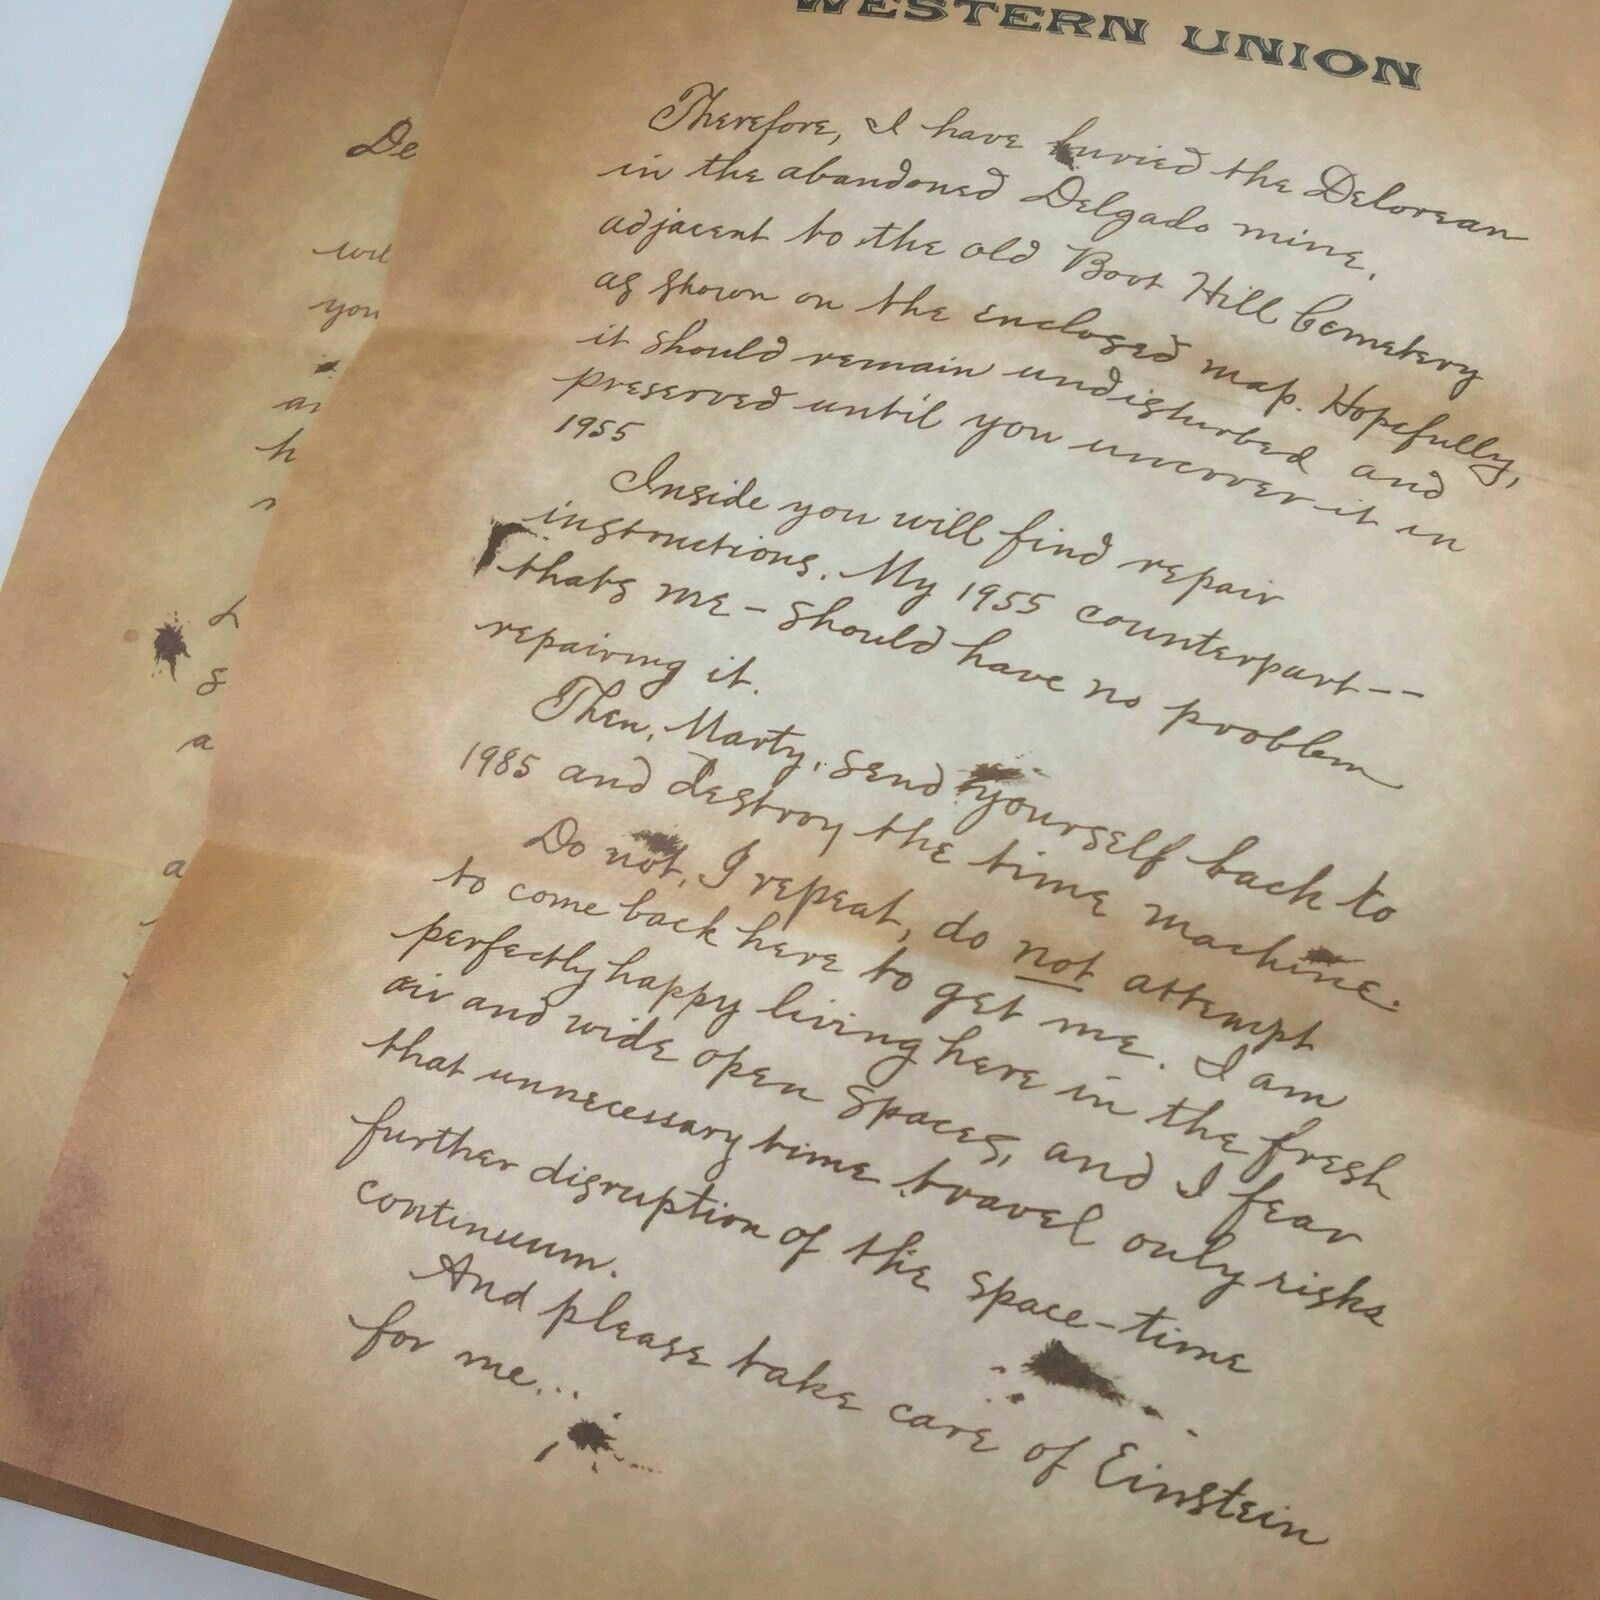 WESTERN UNION
Therefore, I have buried the Delorean
in the abandoned Delgado mine,
adjacent to the old Boot Hill Cemetery
as shown on the enclosed map. Hopefully,
it should remain undisturbed and
preserved until you uncover it in
1955
Inside you will find repair
instructions. My 1955 counterpart--
thats me - should have no problem
repairing it.
Then, Marty, send yourself back to
1985 and destroy the time machine.
Do not, I repeat, do not attempt
to come back here to get me. I am
perfectly happy living here in the fresh
air and wide open spaces, and I fear
that unnecessary time travel only risks
further disruption of the space-time
continuum.
And please take care of Einstein
for me...
De
wil
you
h
a